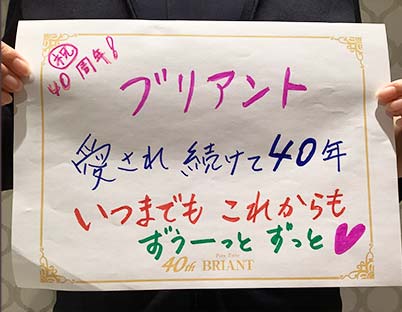 ㊗
40周年!
ブリアント
愛され続けて40年
いつまでも これからも
ずうーっと ずっと
40th BRIANT